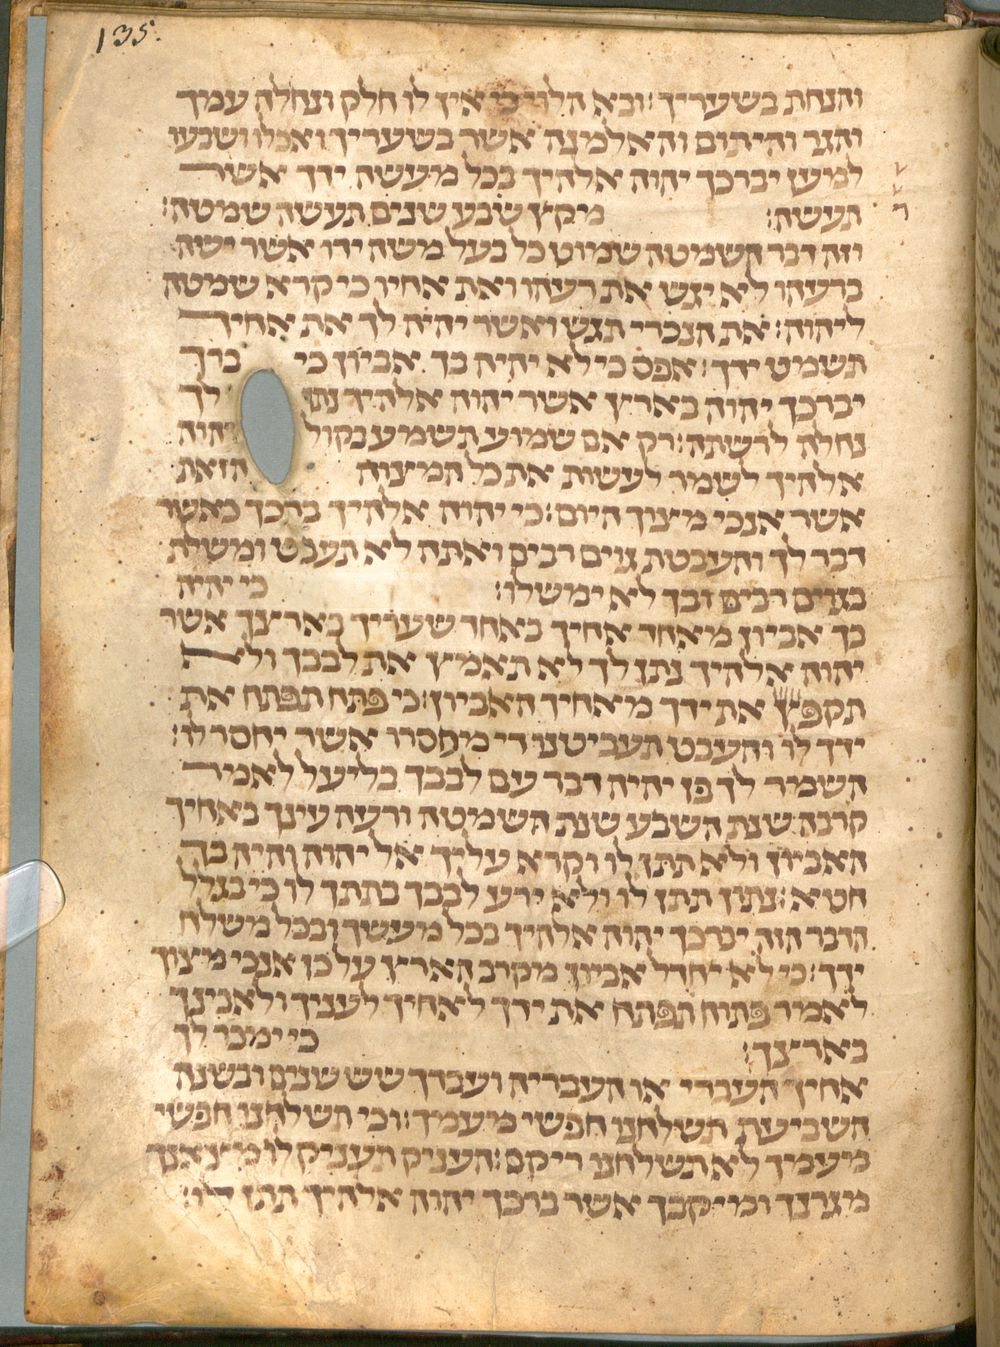 135.
והנחת בשעריך: ובא הלוי כי אין לו חלק ונחלה עמך
והגר והיתום והאלמנה אשר בשעריך ואכלו ושבעו
למען יברכך יהוה אלהיך בכל מעשה ידך אשר
תעשה: מקץ שבע שנים תעשה שמטה:
וזה דבר השמטה שמוט כל בעל משה ידו אשר ישה
ברעהו לא יגש את רעהו ואת אחיו כי קרא שמטה
ליהוה: את הנכרי תגש ואשר יהיה לך את אחיך
תשמט ידך: אפס כי לא יהיה בך אביון כי ברך
יברכך יהוה בארץ אשר יהוה אלהיך נתן לך
נחלה לרשתה: רק אם שמוע תשמע בקול יהוה
אלהיך לשמר לעשות את כל המצוה הזאת
אשר אנכי מצוך היום: כי יהוה אלהיך ברכך כאשר
דבר לך והעבטת גוים רבים ואתה לא תעבט ומשלת
בגוים רבים ובך לא ימשלו: כי יהיה
בך אביון מאחד אחיך באחד שעריך בארצך אשר
יהוה אלהיך נתן לך לא תאמץ את לבבך ולא
תקפץ את ידך מאחיך האביון: כי פתח תפתח את
ידך לו והעבט תעביטנו די מחסרו אשר יחסר לו:
השמר לך פן יהיה דבר עם לבבך בליעל לאמר
קרבה שנת השבע שנת השמטה ורעה עינך באחיך
האביון ולא תתן לו וקרא עליך אל יהוה והיה בך
חטא: נתון תתן לו ולא ירע לבבך בתתך לו כי בגלל
הדבר הזה יברכך יהוה אלהיך בכל מעשך ובכל משלח
ידך: כי לא יחדל אביון מקרב הארץ על כן אנכי מצוך
לאמר פתוח תפתח את ידך לאחיך לעניך ולאבינך
בארצך: כי ימכר לך
אחיך העברי או העבריה ועבדך שש שנים ובשנה
השביעת תשלחנו חפשי מעמך: וכי תשלחנו חפשי
מעמך לא תשלחנו ריקם: העניק תעניק לו מצאנך
מגרנך ומיקבך אשר ברכך יהוה אלהיך תתן לו: